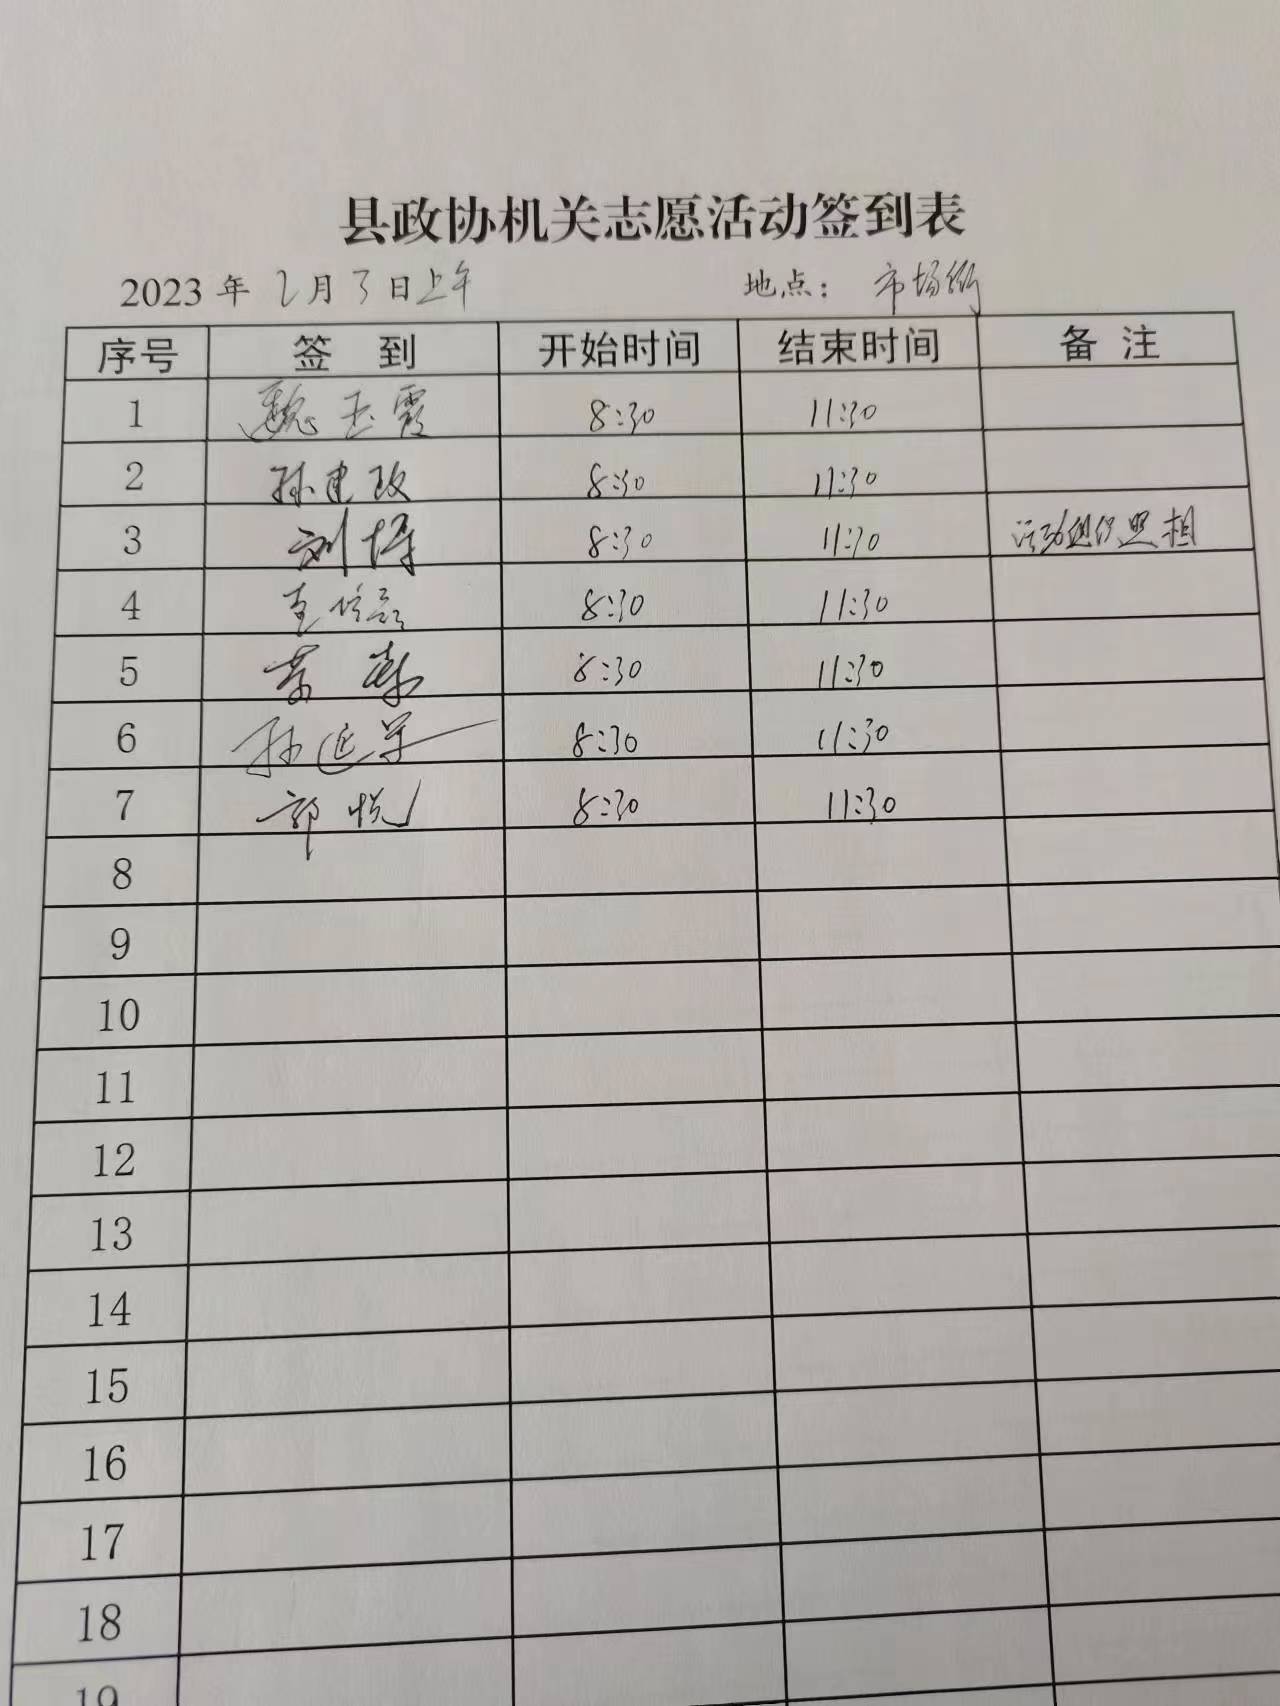 县政协机关志愿活动签到表
2023年 2月3日上午 地点：市场街
序号 签到 开始时间 结束时间 备注
1 魏玉霞 8:30 11:30
2 孙建政 8:30 11:30
3 刘 8:30 11:30 活动组织照相
4 8:30 11:30
5 8:30 11:30
6 孙延军 8:30 11:30
7 郭悦 8:30 11:30
8
9
10
11
12
13
14
15
16
17
18
19